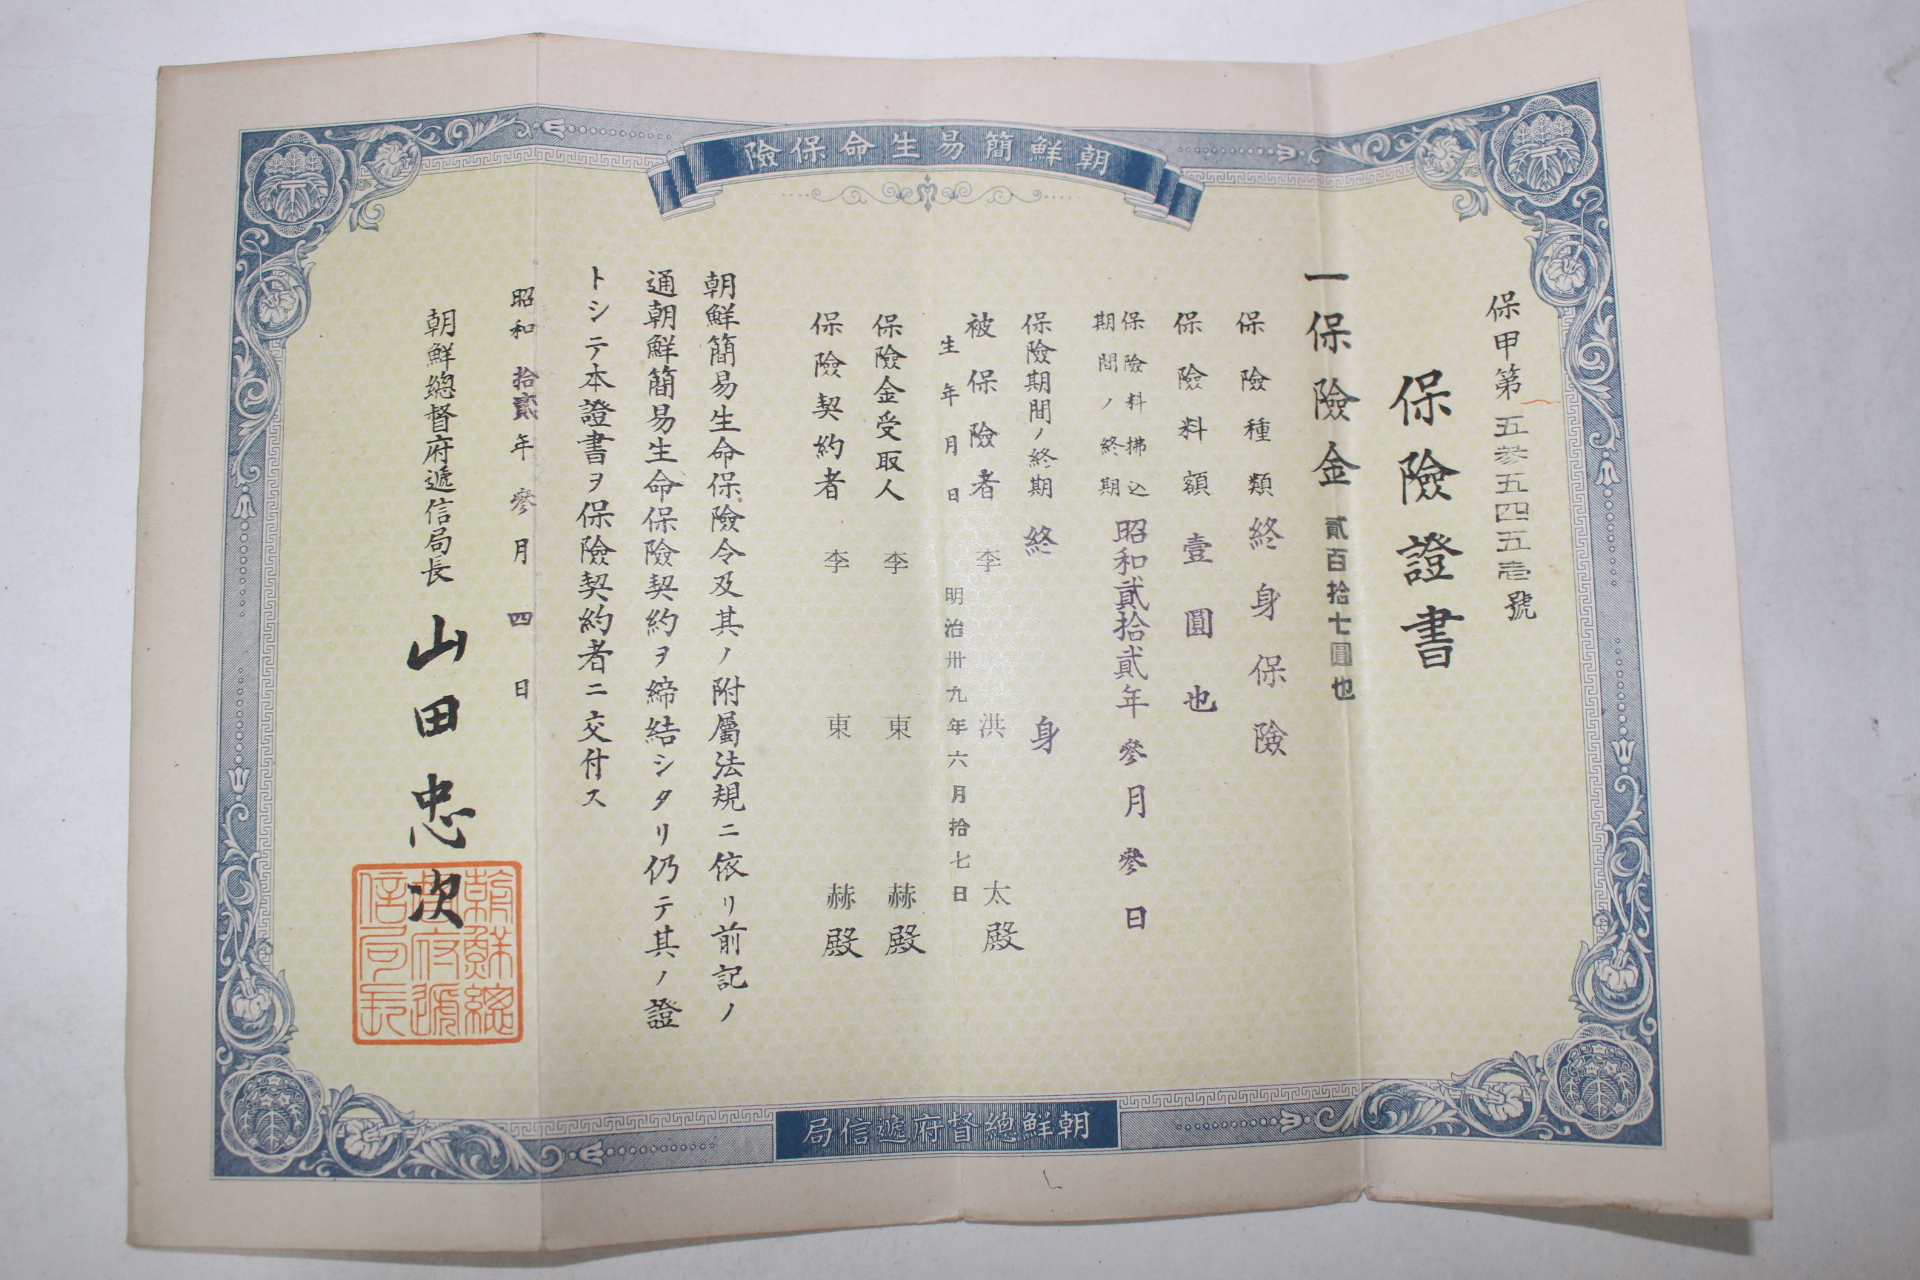 朝鮮簡易生命保險
保甲第五参五四五壱號
保險證書
一保險金貳百拾七圓也
保險種類終身保險
保險料額壹圓也
保險料拂込期間ノ終期昭和貳拾貳年參月參日
保險期間ノ終期終身
被保險者李洪太殿
生年月日明治卅九年六月拾七日
保險金受取人李東赫殿
保險契約者李東赫殿
朝鮮簡易生命保險令及其ノ附屬法規ニ依リ前記ノ
通朝鮮簡易生命保險契約ヲ締結シタリ仍テ其ノ證
トシテ本證書ヲ保險契約者ニ交付ス
昭和拾貳年參月四日
朝鮮總督府遞信局長山田忠次
朝鮮總
督府遞
信局長
朝鮮總督府遞信局